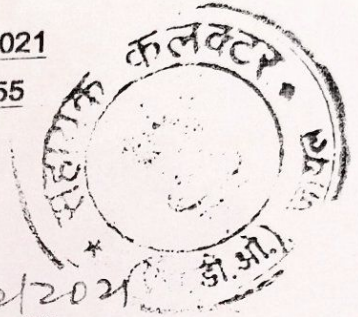 021
55
सहायक कलक्टर •
डी.ओ.)
2/2021